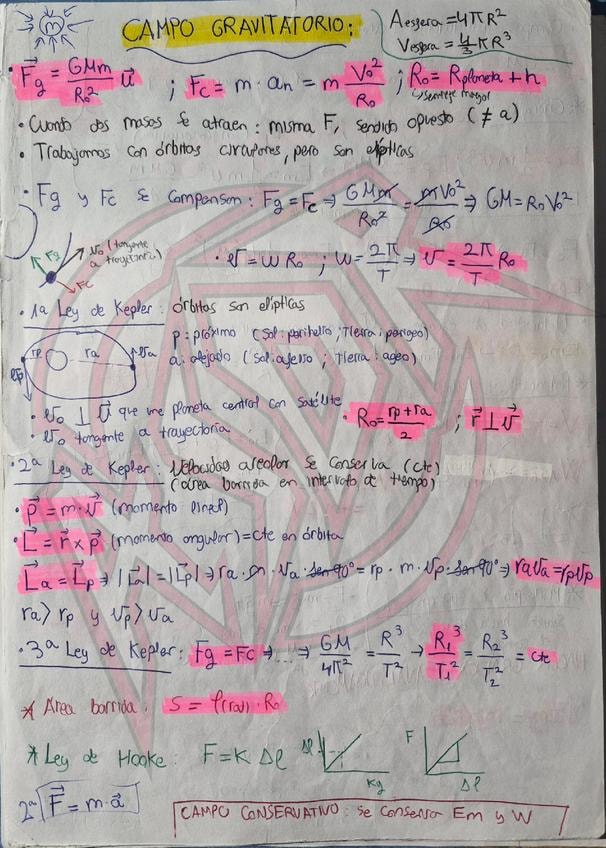 m
CAMPO GRAVITATORIO:
A esfera = 4πR²
V esfera = 4/3 πR³
· F⃗g = GMm/R₀² u⃗ ; Fc = m · an = m V₀²/R₀ ; R₀ = Rplaneta + h
↳ semieje mayor
· Cuando dos masas se atraen: misma F, sentido opuesto (≠ a)
· Trabajamos con órbitas circulares, pero son elípticas
· Fg y Fc se compensan: Fg = Fc → GMm/R₀² = mV₀²/R₀ → GM = R₀V₀²
Fg
v₀ (tangente a trayectoria)
Fc
· v = w R₀ ; w = 2π/T → v = 2π/T R₀
· 1ª Ley de Kepler: órbitas son elípticas
rp ra va
vp
p: próximo (Sol: perihelio; Tierra: perigeo)
a: alejado (Sol: afelio; Tierra: ageo)
· v₀ ⊥ u⃗ que une planeta central con satélite
· v₀ tangente a trayectoria
· R₀ = rp + ra/2 ; r⃗ ⊥ v⃗
· 2ª Ley de Kepler: Velocidad areolar se conserva (cte)
(área barrida en intervalo de tiempo)
· p⃗ = m · v⃗ (momento lineal)
· L⃗ = r⃗ × p⃗ (momento angular) = cte en órbita
L⃗a = L⃗p → |L⃗a| = |L⃗p| → ra · m · va · sen 90° = rp · m · vp · sen 90° → ra va = rp vp
ra > rp y vp > va
· 3ª Ley de Kepler: Fg = Fc → ... → GM/4π² = R³/T² → R₁³/T₁² = R₂³/T₂² = cte
* Área barrida: S = φ(rad) · R₀
* Ley de Hooke: F = K Δl
Δl
Kg
F
Δl
2ª F⃗ = m · a⃗
CAMPO CONSERVATIVO: se conserva Em y W